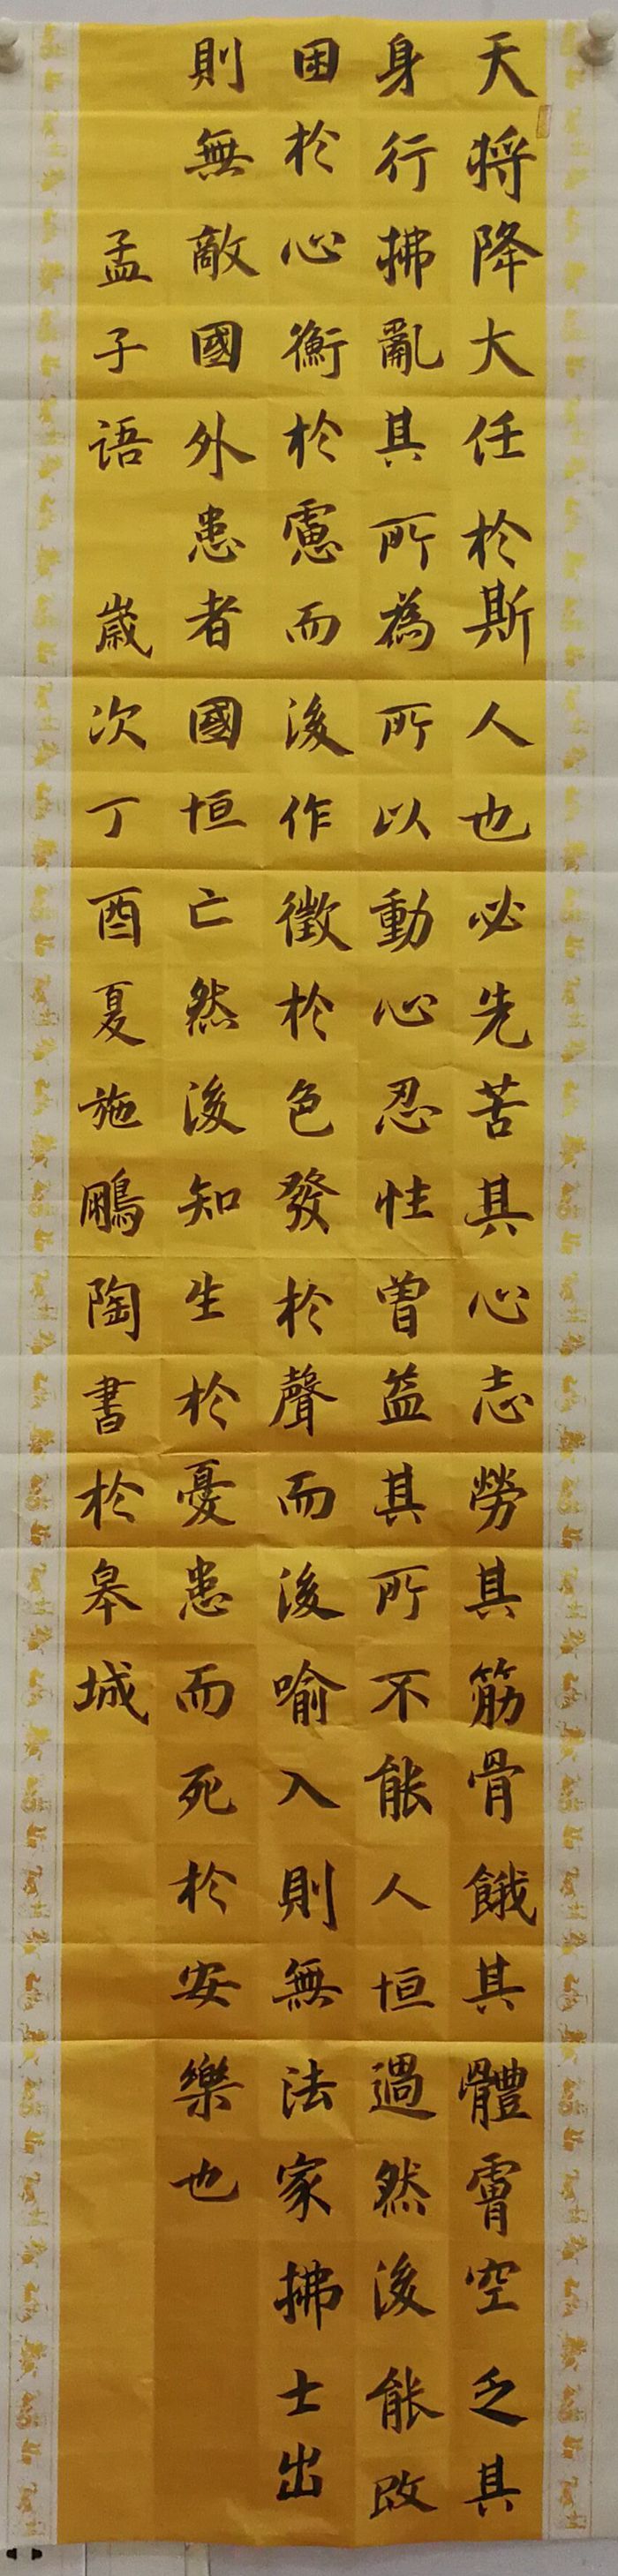 天将降大任於斯人也必先苦其心志勞其筋骨餓其體膚空乏其
身行拂亂其所為所以動心忍性曾益其所不能人恒過然後能改
困於心衡於慮而後作徵於色發於聲而後喻入則無法家拂士出
則無敵國外患者國恒亡然後知生於憂患而死於安樂也
孟子語 歲次丁酉夏施鵰陶書於皋城